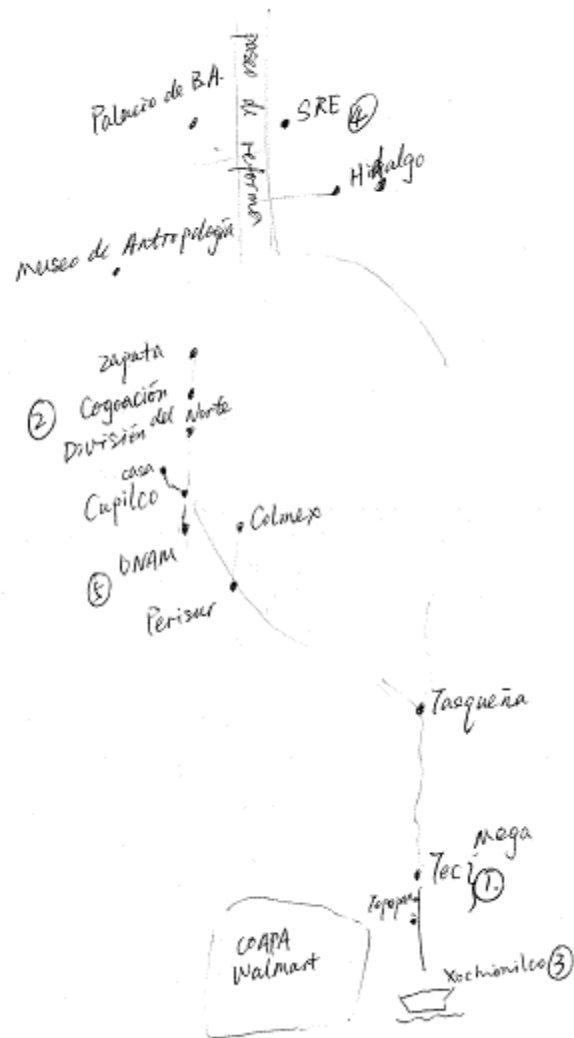 paseo de reforma
Palacio de B.A.
SRE ④
Hidalgo
Museo de Antropología
Zapata
② Cogoación
División del Norte
casa
Cupilco
Colmex
UNAM
⑤
Perisur
Tasqueña
Mega
Tec } ①.
COAPA
Walmart
Xochimilco ③